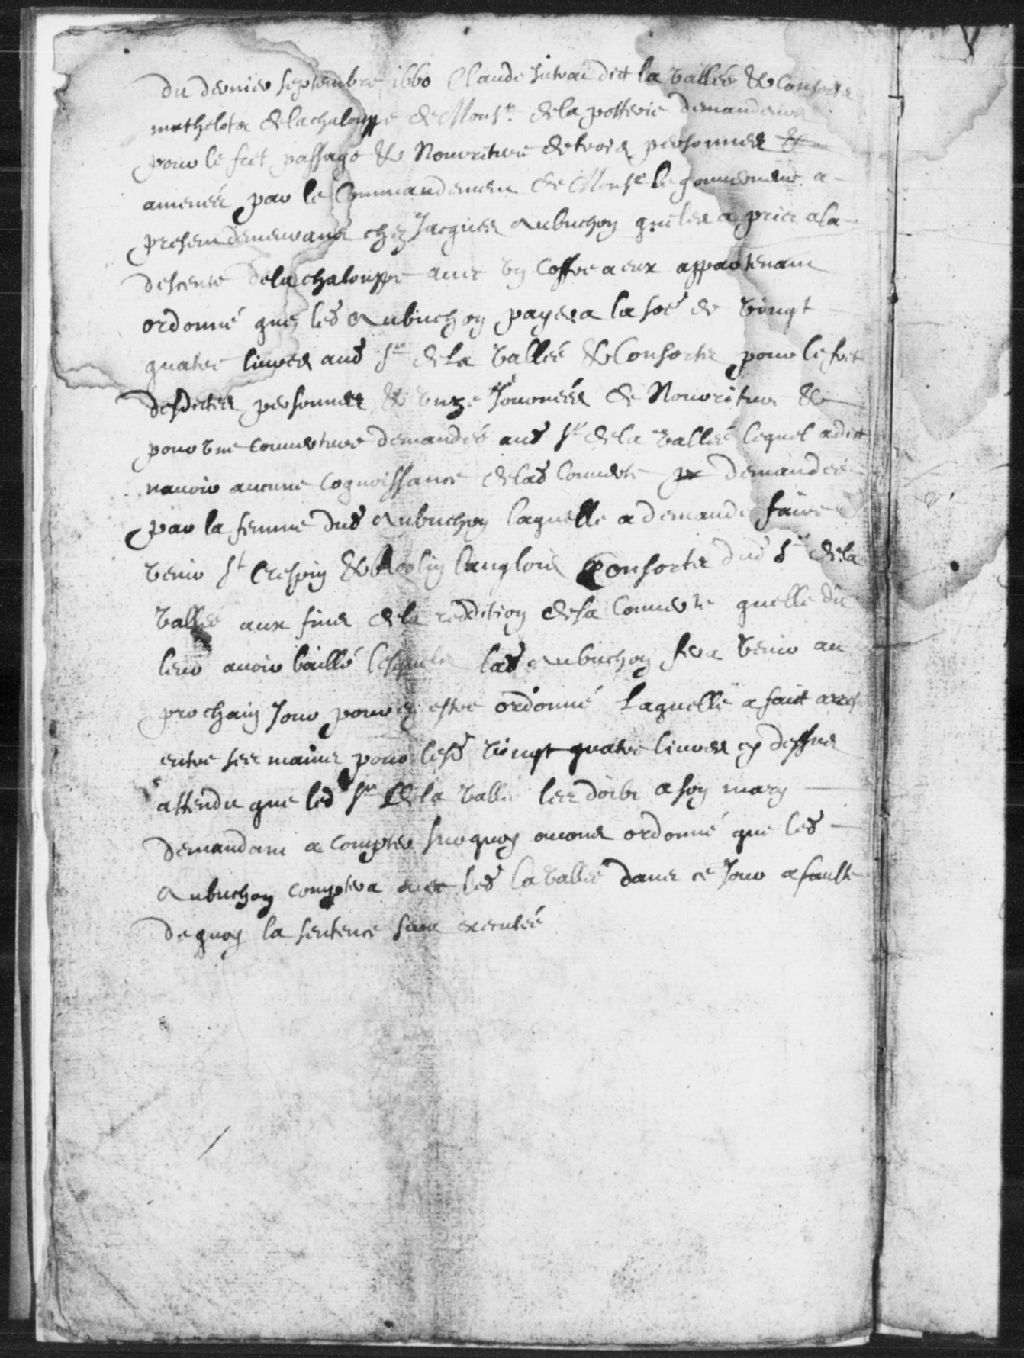 Du dernier septembre 1660 Claude dit la Vallée & Consorts
mathelots de la chalouppe de Mons.r de la potterie demandeurs
pour le fret passage & Nourriture de trois personnes
amenés par le Commandement de Monsr le gouverneur a
present demeurans chez Jacques Aubuchon qui les a pris a la
descente de la chalouppe avec un Coffre a eux appartenant
ordonné que led Aubuchon payera la soe de Vingt
quatre livres aud Sr de la Vallée & Consorts pour le fret
desdictes personnes & unze Journées de Nourriture &
pour une couverture demandée aud Sr de la Vallée lequel a dit
navoir aucune cognoissance de lad Couverte demandée
par la femme dud Aubuchon laquelle a demandé faire
venir St Crespin & langlois Consorts dud Sr de la
Vallée aux fins de la reddition de sa Couverte quelle dit
leur avoir baillé lad Aubuchon fera venir au
prochain Jour pour en estre ordonné Laquelle a fait arest
entre ses mains pour lesd Vingt quatre livres cy dessus
attendu que led Sr de la Vallée les doibt a son mary
demandant a compter surquoy avons ordonné que led
Aubuchon comptera avec led la Vallée dans ce Jour a faulte
de quoy la sentence sera executée